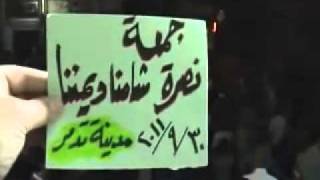 جمعة
نصرة شامنا ويمننا
٢٠١١/٩/٣٠
مدينة تدمر